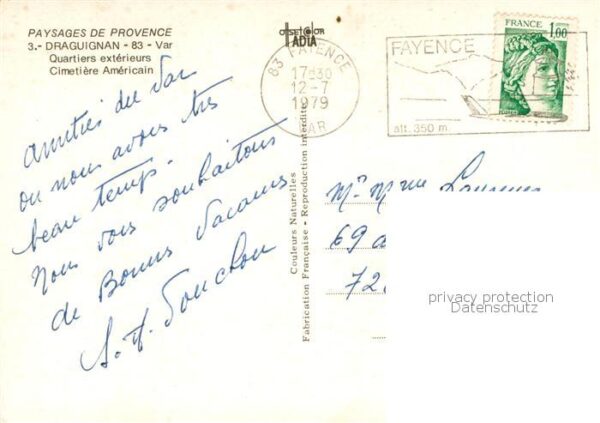 PAYSAGES DE PROVENCE
3.- DRAGUIGNAN - 83 - Var
Quartiers extérieurs
Cimetière Américain
OFFSET COLOR
IADIA
83 FAYENCE
17H30
12-7
1979
VAR
FAYENCE
alt. 350 m.
FRANCE
1,00
Amitiés du Var
ou nous avons très
beau temps.
Nous vous souhaitons
de Bonnes Vacances
Couleurs Naturelles
Fabrication Française - Reproduction interdite
Mr Mme
69
72
privacy protection
Datenschutz